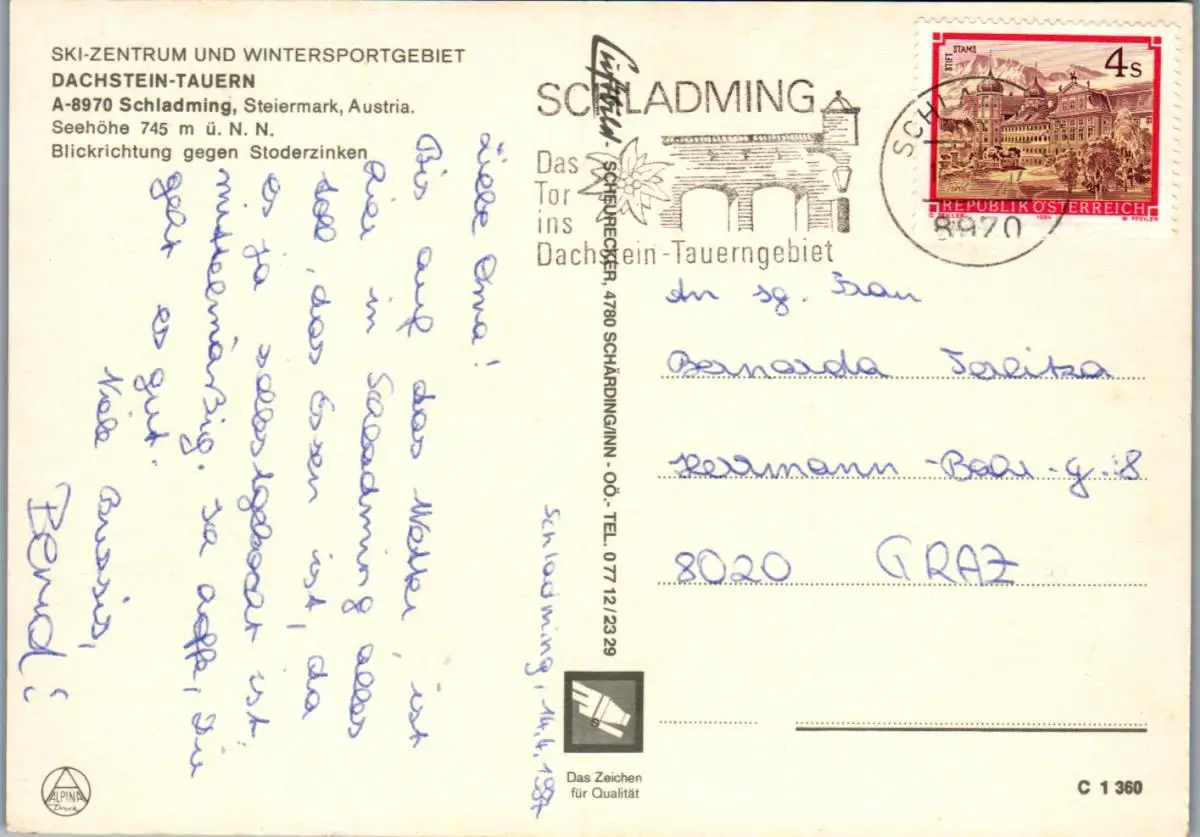 SKI-ZENTRUM UND WINTERSPORTGEBIET
DACHSTEIN-TAUERN
A-8970 Schladming, Steiermark, Austria.
Seehöhe 745 m ü. N. N.
Blickrichtung gegen Stoderzinken
Schladming, 14.4.1987
Liebe Oma!
Bis auf das Wetter, ist
hier in Schladming alles
toll, das Essen ist, da
es ja selbstgekocht ist
mittelmäßig. Ich hoffe, Dir
geht es gut.
Viele Bussis,
Bernd
ALPINA
Druck
Luftbild - SCHEURECKER, 4780 SCHÄRDING/INN - OÖ.- TEL. 0 77 12 / 23 29
Das Zeichen
für Qualität
SCHLADMING
Das
Tor
ins
Dachstein-Tauerngebiet
SCHLA
8970
STIFT STAMS
4s
Tirol
REPUBLIK ÖSTERREICH
1984
W. PFEILER
An sg. Frau
Bernarda Terlitza
Herrmann-Bahr-g. 8
8020 GRAZ
C 1 360